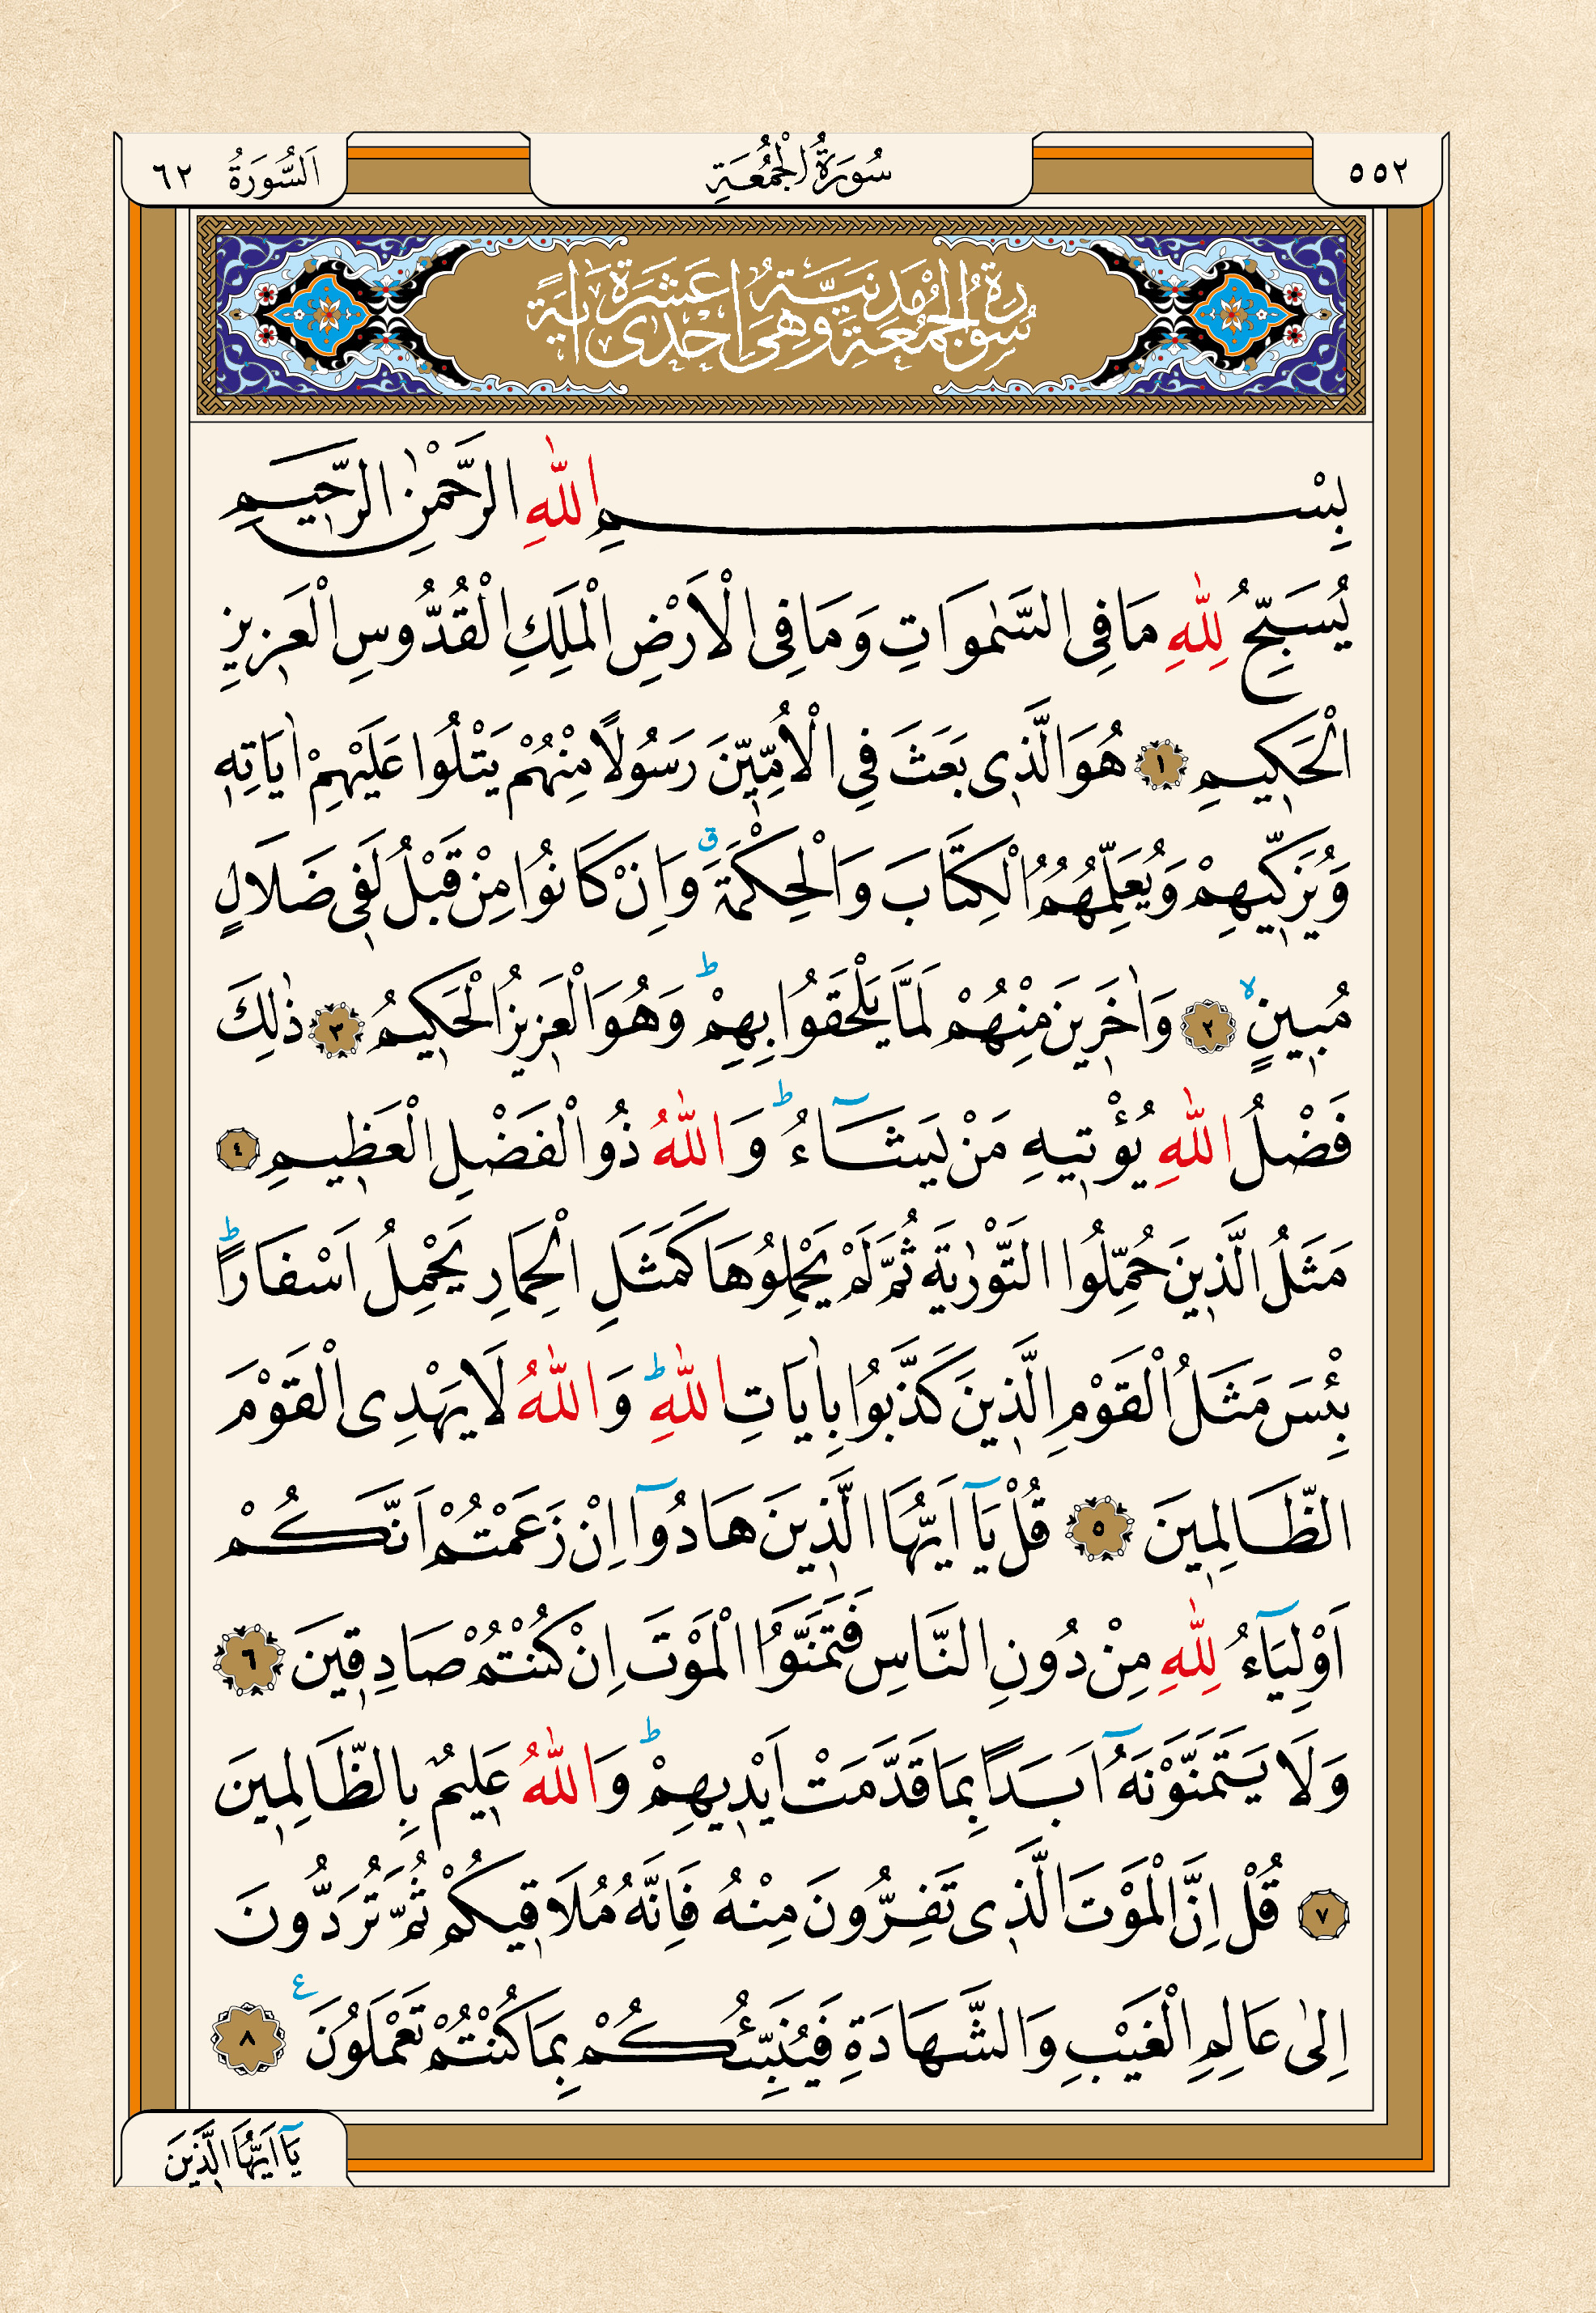 ٥٥٢
سُورَةُ الْجُمُعَةِ
اَلسُّورَةُ ٦٢
سُورَةُ الْجُمُعَةِ مَدَنِيَّةٌ وَهِىَ اِحْدٰى عَشْرَةَ اٰيَةً
بِسْمِ اللّٰهِ الرَّحْمٰنِ الرَّحِيمِ
يُسَبِّحُ لِلّٰهِ مَا فِى السَّمٰوَاتِ وَمَا فِى الْاَرْضِ الْمَلِكِ الْقُدُّوسِ الْعَزِيزِ
الْحَكِيمِ ١ هُوَ الَّذِى بَعَثَ فِى الْاُمِّيِّنَ رَسُولًا مِنْهُمْ يَتْلُوا عَلَيْهِمْ اٰيَاتِهِ
وَيُزَكِّيهِمْ وَيُعَلِّمُهُمُ الْكِتَابَ وَالْحِكْمَةَ ق وَاِنْ كَانُوا مِنْ قَبْلُ لَفِى ضَلَالٍ
مُبِينٍ لا ٢ وَاٰخَرِينَ مِنْهُمْ لَمَّا يَلْحَقُوا بِهِمْ ط وَهُوَ الْعَزِيزُ الْحَكِيمُ ٣ ذٰلِكَ
فَضْلُ اللّٰهِ يُؤْتِيهِ مَنْ يَشَٓاءُ ط وَاللّٰهُ ذُو الْفَضْلِ الْعَظِيمِ ٤
مَثَلُ الَّذِينَ حُمِّلُوا التَّوْرٰيةَ ثُمَّ لَمْ يَحْمِلُوهَا كَمَثَلِ الْحِمَارِ يَحْمِلُ اَسْفَارًا ط
بِئْسَ مَثَلُ الْقَوْمِ الَّذِينَ كَذَّبُوا بِاٰيَاتِ اللّٰهِ ط وَاللّٰهُ لَا يَهْدِى الْقَوْمَ
الظَّالِمِينَ ٥ قُلْ يَٓا اَيُّهَا الَّذِينَ هَادُٓوا اِنْ زَعَمْتُمْ اَنَّكُمْ
اَوْلِيَٓاءُ لِلّٰهِ مِنْ دُونِ النَّاسِ فَتَمَنَّوُا الْمَوْتَ اِنْ كُنْتُمْ صَادِقِينَ ٦
وَلَا يَتَمَنَّوْنَهُٓ اَبَدًا بِمَا قَدَّمَتْ اَيْدِيهِمْ ط وَاللّٰهُ عَلِيمٌ بِالظَّالِمِينَ
٧ قُلْ اِنَّ الْمَوْتَ الَّذِى تَفِرُّونَ مِنْهُ فَاِنَّهُ مُلَاقِيكُمْ ثُمَّ تُرَدُّونَ
اِلٰى عَالِمِ الْغَيْبِ وَالشَّهَادَةِ فَيُنَبِّئُكُمْ بِمَا كُنْتُمْ تَعْمَلُونَ ع ٨
يَٓا اَيُّهَا الَّذِينَ